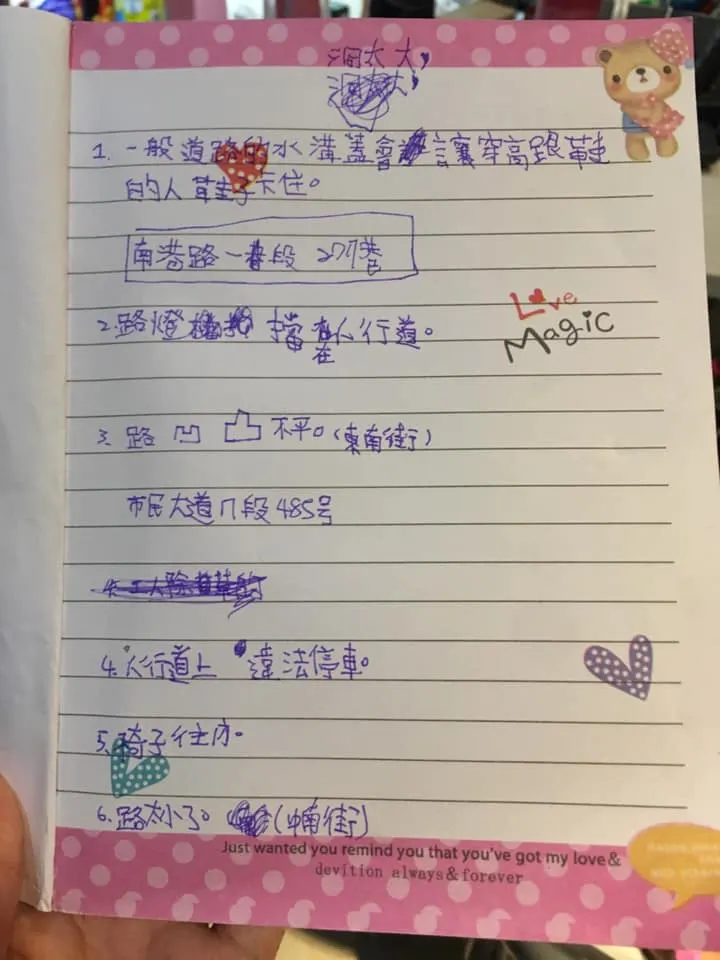 洞太大,
1. 一般道路的水溝蓋會讓穿高跟鞋
的人鞋子卡住。
南港路一段277巷
2.路燈擋在人行道。
Love
Magic
3. 路凹凸不平。(東南街)
市民大道八段485号
4.人行道上違法停車。
5.椅子
6.路太小了。(中南街)
Just wanted you remind you that you've got my love &
devition always&forever